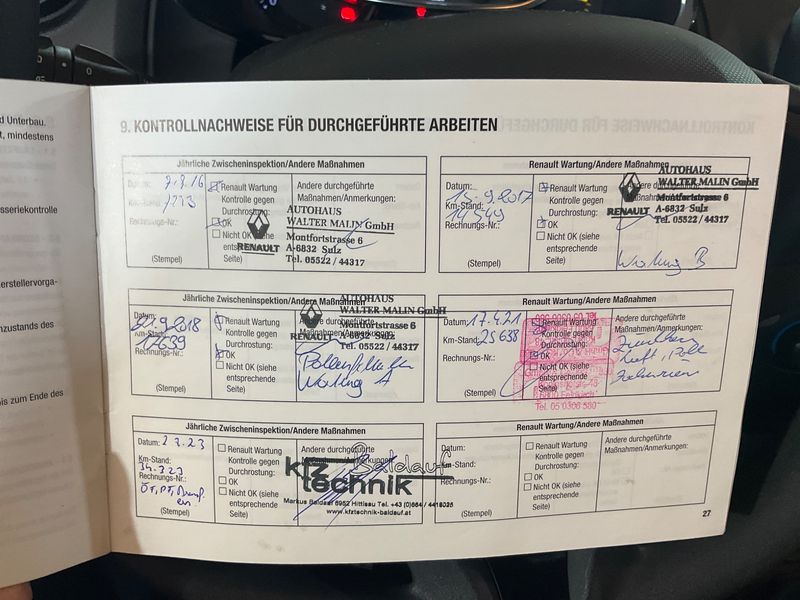 d Unterbau.
t, mindestens
sseriekontrolle
erstellervorga-
nzustands des
is zum Ende des
9. KONTROLLNACHWEISE FÜR DURCHGEFÜHRTE ARBEITEN
Jährliche Zwischeninspektion/Andere Maßnahmen
Datum:
Km-Stand:
Rechnungs-Nr.:
(Stempel)
Renault Wartung
Kontrolle gegen
Durchrostung:
OK
Nicht OK (siehe
entsprechende
Seite)
Andere durchgeführte
Maßnahmen/Anmerkungen:
RENAULT
AUTOHAUS
WALTER MALIN GmbH
Montfortstrasse 6
A-6832 Sulz
Tel. 05522 / 44317
Renault Wartung/Andere Maßnahmen
Datum: 15.9.2017
Km-Stand: 14549
Rechnungs-Nr.:
(Stempel)
Renault Wartung
Kontrolle gegen
Durchrostung:
OK
Nicht OK (siehe
entsprechende
Seite)
RENAULT
AUTOHAUS
WALTER MALIN GmbH
Montfortstrasse 6
A-6832 Sulz
Tel. 05522 / 44317
Wartung B
Jährliche Zwischeninspektion/Andere Maßnahmen
Datum:
Km-Stand: 17639
Rechnungs-Nr.:
(Stempel)
Renault Wartung
Kontrolle gegen
Durchrostung:
OK
Nicht OK (siehe
entsprechende
Seite)
RENAULT
AUTOHAUS
WALTER MALIN GmbH
Montfortstrasse 6
A-6832 Sulz
Tel. 05522 / 44317
Wartung A
Renault Wartung/Andere Maßnahmen
Datum: 17.4.21
Km-Stand: 25638
Rechnungs-Nr.:
(Stempel)
Renault Wartung
Kontrolle gegen
Durchrostung:
OK
Nicht OK (siehe
entsprechende
Seite)
Andere durchgeführte
Maßnahmen/Anmerkungen:
Luft, Pole
Jährliche Zwischeninspektion/Andere Maßnahmen
Datum: 2 7.23
Km-Stand:
34.323
Rechnungs-Nr.:
(Stempel)
Renault Wartung
Kontrolle gegen
Durchrostung:
OK
Nicht OK (siehe
entsprechende
Seite)
Andere durchgeführte
Maßnahmen/Anmerkungen:
kfz Baldauf
technik
Markus Baldauf 6952 Hittisau Tel. +43 (0)664 / 4418025
www.kfztechnik-baldauf.at
Renault Wartung/Andere Maßnahmen
Datum:
Km-Stand:
Rechnungs-Nr.:
(Stempel)
Renault Wartung
Kontrolle gegen
Durchrostung:
OK
Nicht OK (siehe
entsprechende
Seite)
Andere durchgeführte
Maßnahmen/Anmerkungen:
27